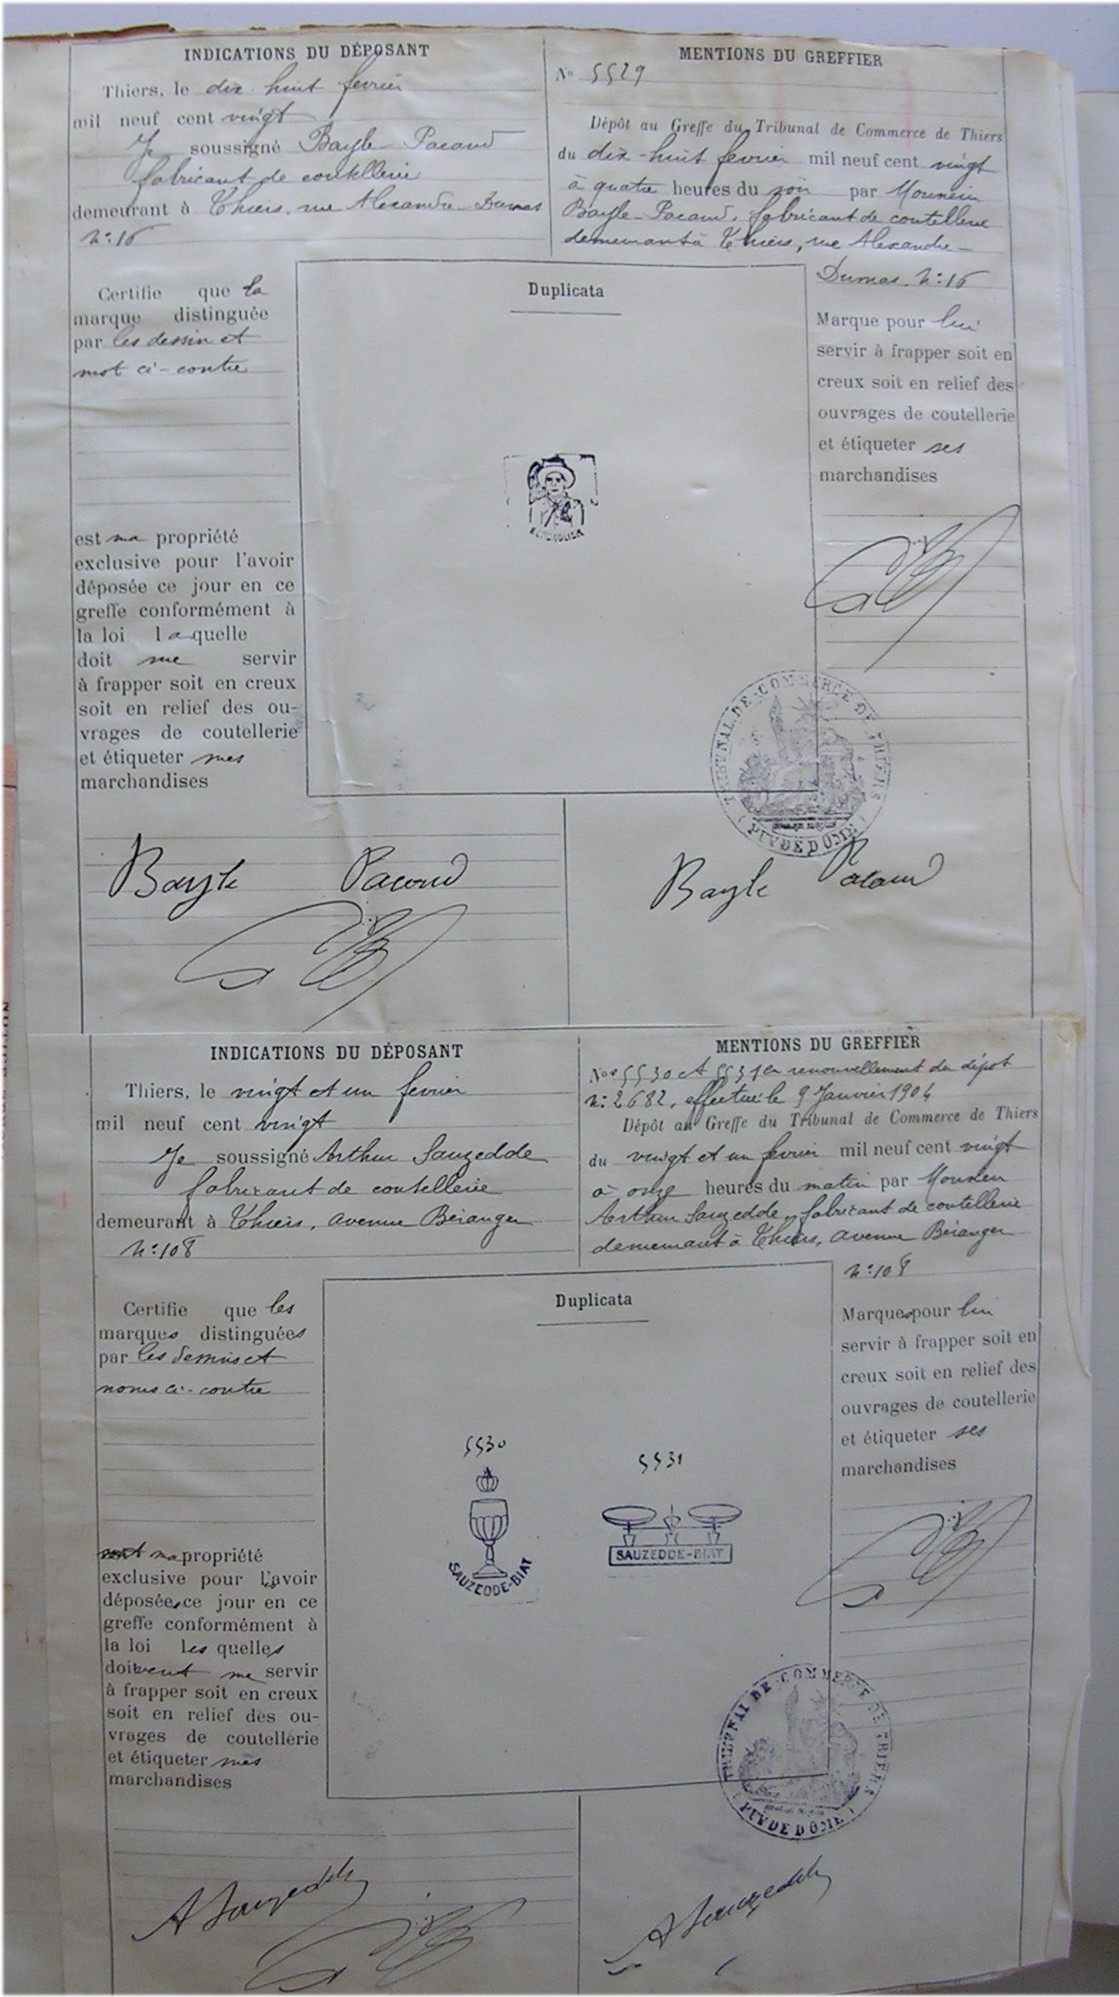 INDICATIONS DU DÉPOSANT
Thiers, le dix huit fevrier
mil neuf cent vingt
Je soussigné Bayle-Pacaud
fabricant de coutellerie
demeurant à Thiers, rue Alexandre-Dumas
N:16
Certifie que la
marque distinguée
par les dessin et
mot ci-contre
est ma propriété
exclusive pour l'avoir
déposée ce jour en ce
greffe conformément à
la loi laquelle
doit me servir
à frapper soit en creux
soit en relief des ou-
vrages de coutellerie
et étiqueter mes
marchandises
MENTIONS DU GREFFIER
N° 5529
Dépôt au Greffe du Tribunal de Commerce de Thiers
du dix-huit fevrier mil neuf cent vingt
à quatre heures du soir par Monsieur
Bayle-Pacaud, fabricant de coutellerie
demeurant à Thiers, rue Alexandre-
Dumas, N:16
Duplicata
Marque pour lui
servir à frapper soit en
creux soit en relief des
ouvrages de coutellerie
et étiqueter ses
marchandises
TRIBUNAL DE COMMERCE DE THIERS
PUY DE DÔME
Bayle Pacaud
Bayle Pacaud
INDICATIONS DU DÉPOSANT
Thiers, le vingt et un fevrier
mil neuf cent vingt
Je soussigné Arthur Sauzedde
fabricant de coutellerie
demeurant à Thiers, avenue Béranger
N:108
Certifie que les
marques distinguées
par les dessins et
noms ci-contre
sont ma propriété
exclusive pour les avoir
déposées ce jour en ce
greffe conformément à
la loi lesquelles
doivent me servir
à frapper soit en creux
soit en relief des ou-
vrages de coutellerie
et étiqueter mes
marchandises
MENTIONS DU GREFFIER
Nos 5530 et 5531 en renouvellement du dépôt
N:2682, effectué le 9 Janvier 1904
Dépôt au Greffe du Tribunal de Commerce de Thiers
du vingt et un fevrier mil neuf cent vingt
à onze heures du matin par Monsieur
Arthur Sauzedde, fabricant de coutellerie
demeurant à Thiers, avenue Béranger
N:108
Duplicata
5530
SAUZEDDE-BIAT
5531
SAUZEDDE-BIAT
Marques pour lui
servir à frapper soit en
creux soit en relief des
ouvrages de coutellerie
et étiqueter ses
marchandises
TRIBUNAL DE COMMERCE DE THIERS
PUY DE DÔME
A Sauzedde
A Sauzedde